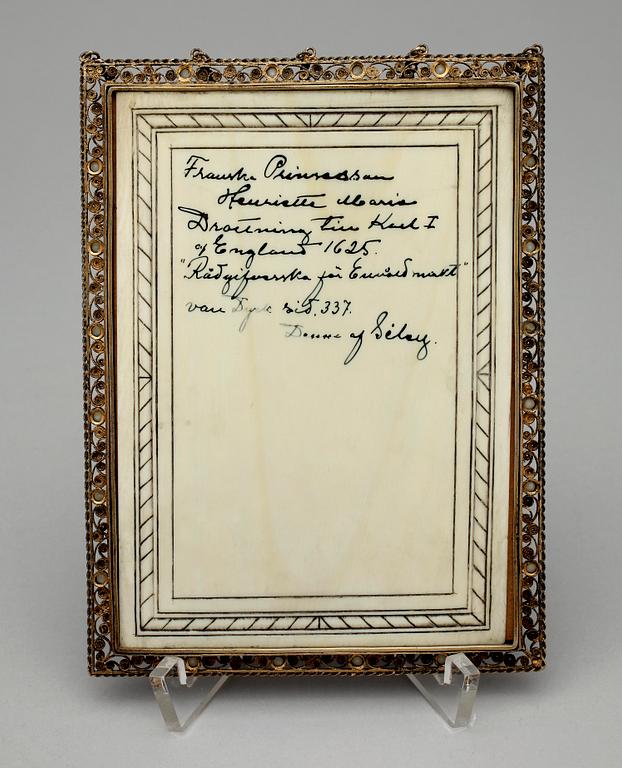 Franska Prinsessan
Henriette Maria
Drottning till Karl I
af England 1625.
"Rådgifverska för Enväldmakt"
van Dyck sid. 337.
Denne af Silvy.